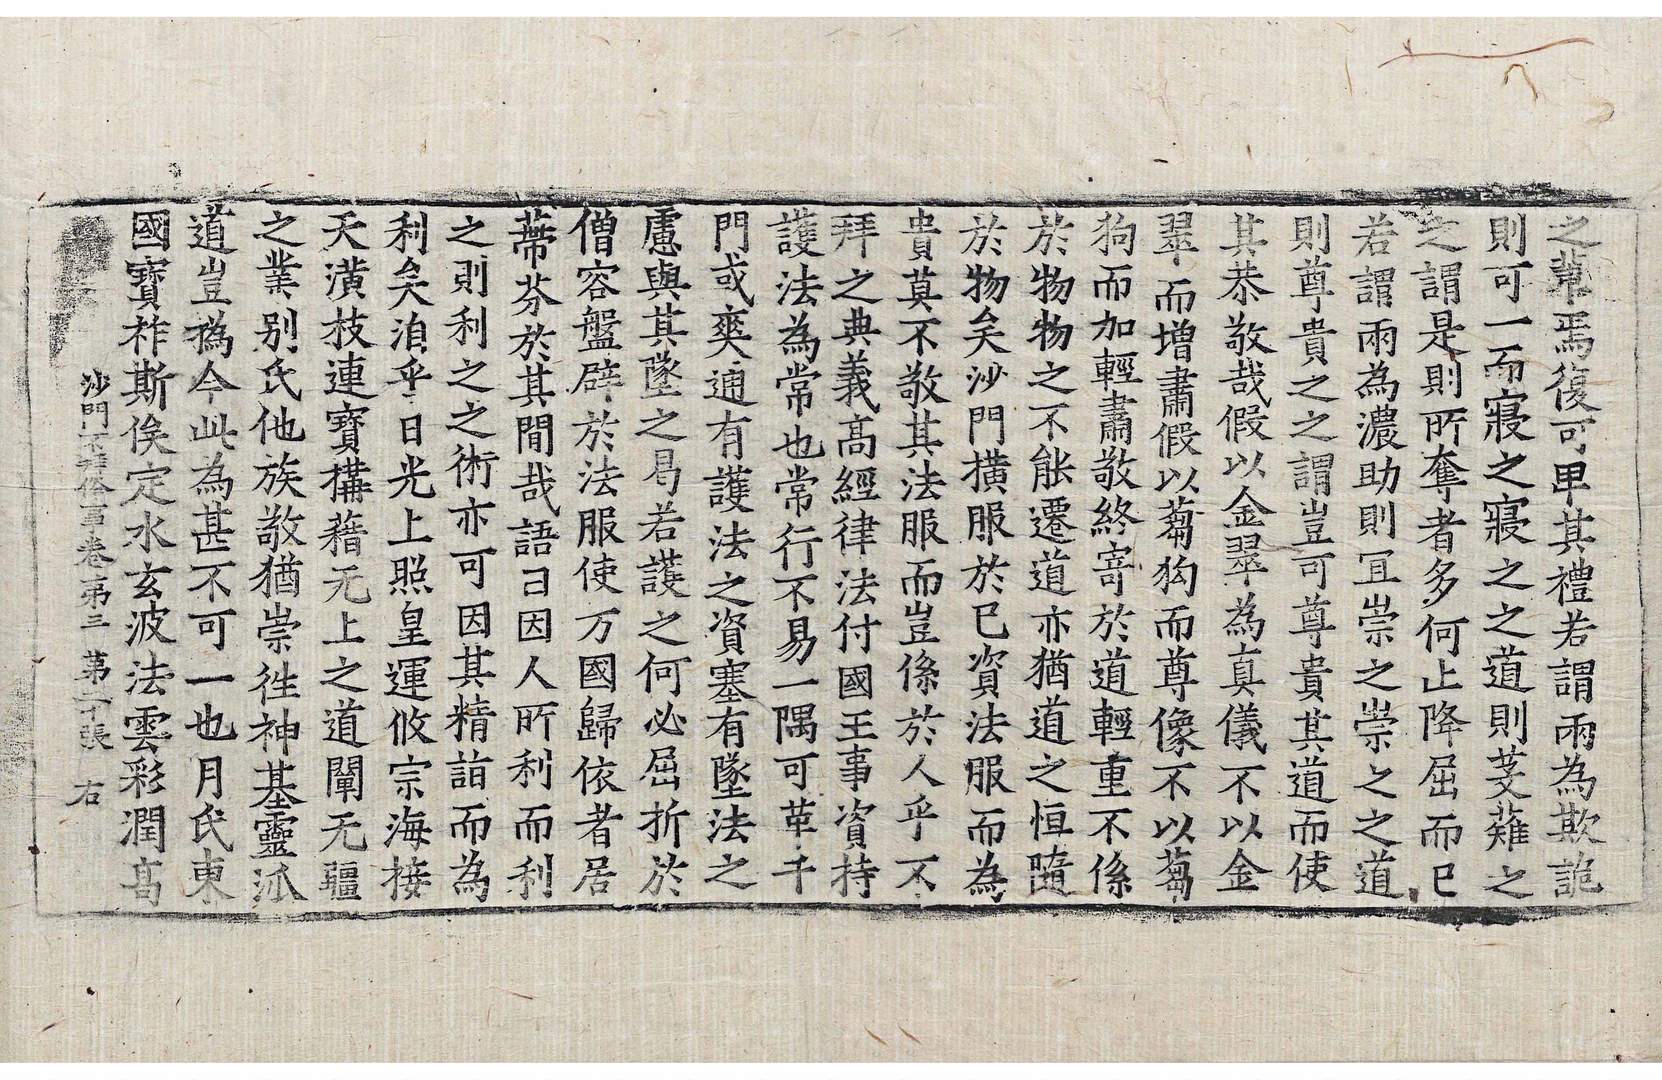 之輩焉復可甲其禮若謂兩為欺詭
則可一而寢之寢之之道則芟薙之
之謂是則所奪者多何止降屈而已
若謂兩為濃助則冝崇之崇之之道
則尊貴之之謂豈可尊貴其道而使
其恭敬哉假以金翠為真儀不以金
翠而增肅假以蒭狗而尊像不以蒭
狗而加輕肅敬終寄於道輕重不係
於物物之不能遷道亦猶道之恒隨
於物矣沙門橫服於已資法服而為
貴莫不敬其法服而豈係於人乎不
拜之典義高經律法付國王事資持
護法為常也常行不易一隅可革千
門或爽適有護法之資塞有墜法之
慮與其墜之曷若護之何必屈折於
僧容盤辟於法服使万國歸依者居
蔕芥於其間哉語曰因人所利而利
之則利之之術亦可因其精詣而為
利矣洎乎日光上照皇運攸宗海接
天潢枝連寶構藉无上之道闡无疆
之業別氏他族敬猶崇徃神基靈派
道豈撝今此為甚不可一也月氏東
國寶祚斯俟定水玄波法雲彩潤高
沙門不拜俗事卷第三 第二十張 右